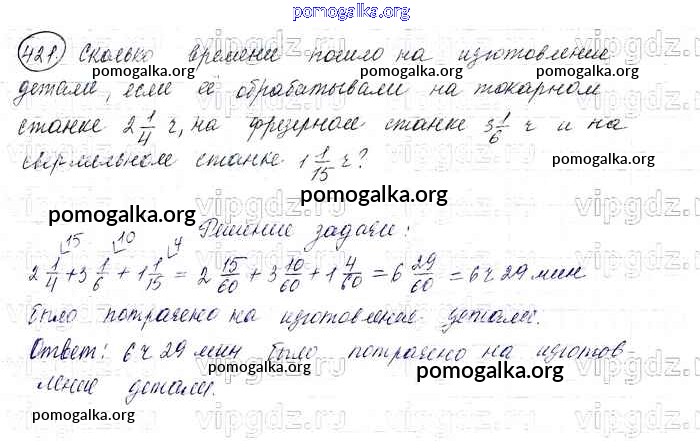 pomogalka.org
421. Сколько времени пошло на изготовление
pomogalka.org pomogalka.org
детали, если её обрабатывали на токарном
станке 2 1/4 ч, на фрезерном станке 3 1/6 ч и на
сверлельном станке 1 1/15 ч?
pomogalka.org
Решение задачи:
15 10 4
2 1/4 + 3 1/6 + 1 1/15 = 2 15/60 + 3 10/60 + 1 4/60 = 6 29/60 = 6 ч 29 мин
было потрачено на изготовление детали.
pomogalka.org pomogalka.org
Ответ: 6 ч 29 мин было потрачено на изготов
pomogalka.org
ление детали.
pomogalka.org
vipgdz.com